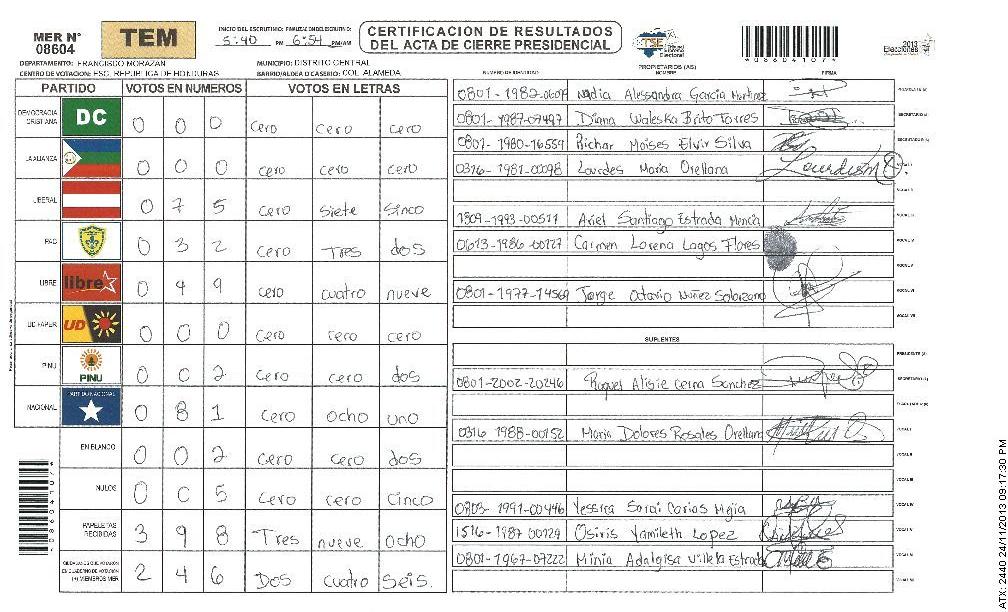 MER Nº 08604
TEM
INICIO DEL ESCRUTINIO: FINALIZACION DEL ESCRUTINIO:
5:40 PM 6:54 PM/AM
CERTIFICACION DE RESULTADOS
DEL ACTA DE CIERRE PRESIDENCIAL
TSE Tribunal Supremo Electoral
*08604107*
2013 Elecciones
DEPARTAMENTO: FRANCISCO MORAZAN MUNICIPIO: DISTRITO CENTRAL
CENTRO DE VOTACION: ESC. REPUBLICA DE HONDURAS BARRIO/ALDEA O CASERIO: COL. ALAMEDA
PARTIDO VOTOS EN NUMEROS VOTOS EN LETRAS
DEMOCRACIA CRISTIANA DC 0 0 0 cero cero cero
LA ALIANZA 0 0 0 cero cero cero
LIBERAL 0 7 5 cero siete sinco
PAC 0 3 2 cero Tres dos
LIBRE libre 0 4 9 cero cuatro nueve
UD FAPER UD 0 0 0 cero cero cero
PINU PINU 0 0 2 cero cero dos
NACIONAL PARTIDO NACIONAL 0 8 1 cero ocho uno
EN BLANCO 0 0 2 cero cero dos
NULOS 0 0 5 cero cero cinco
PAPELETAS RECIBIDAS 3 9 8 Tres nueve ocho
CIUDADANOS QUE VOTARON EN CUADERNO DE VOTACION (+) MIEMBROS MER 2 4 6 Dos cuatro seis.
*08604107*
PROPIETARIOS (AS)
NUMERO DE IDENTIDAD NOMBRE FIRMA
0801-1982-0609 Nadia Alessandra Garcia Martinez PRESIDENTE (A)
0801-1987-07497 Diana Waleska Brito Torres SECRETARIO (A)
0801-1980-16559 Richar Moises Elvir Silva ESCRUTADOR (A)
0316-1981-00098 Lourdes Maria Orellana VOCAL I
VOCAL II
1809-1993-00511 Ariel Santiago Estrada Mencia VOCAL III
0613-1986-00127 Carmen Lorena Lagos Flores VOCAL IV
VOCAL V
0801-1977-14569 Jorge Octavio Nuñez Solorzano VOCAL VI
VOCAL VII
SUPLENTES
PRESIDENTE (A)
0801-2002-20246 Raquel Alisie cerna Sanchez SECRETARIO (A)
ESCRUTADOR (A)
0316 1988-00152 Maria Dolores Rosales Orellana VOCAL I
VOCAL II
VOCAL III
0803-1991-00446 Yessica Sarai Carias Mejia VOCAL IV
1516-1987 00129 Osiris Yamileth Lopez VOCAL V
0801-1967-07222 Minia Adalgisa Villela Estrada VOCAL VI
VOCAL VII
ATX: 2440 24/11/2013 09:17:30 PM